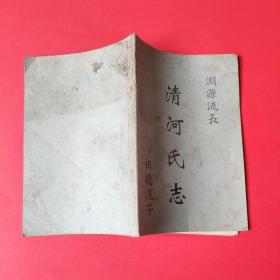 渊源流長
清河氏志
祖德流芳